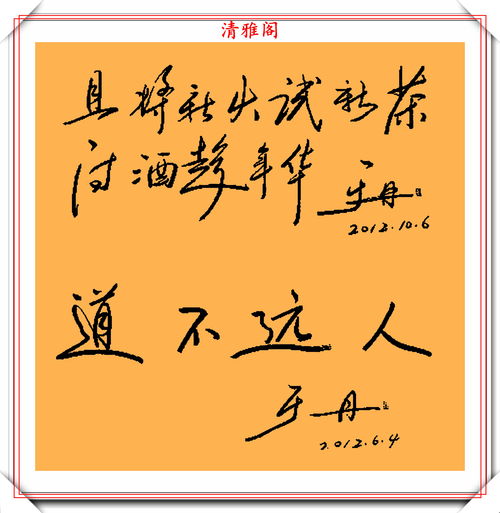 清雅阁
且将新火试新茶
诗酒趁年华 于丹
2012.10.6
道不远人
于丹
2012.6.4